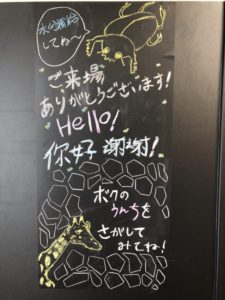 水分補給
してね～
ご来場
ありがとうございます!
Hello!
你好 谢謝!
ボクの
うんちを
さがして
みてね!